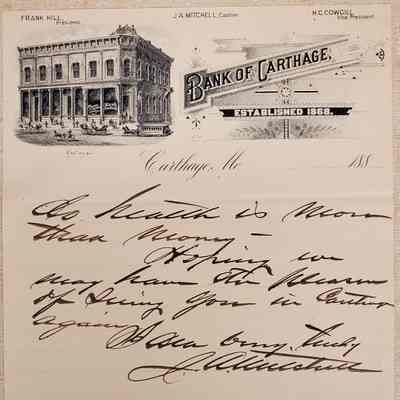 FRANK HILL, President.
J.A. MITCHELL, Cashier
H.C. COWGILL Vice President
BANK OF CARTHAGE,
ESTABLISHED 1868.
Carthage, Mo 188
As health is more
than money –
Hoping we
may have the pleasure
of seeing you in Carthage
again
I am very truly
J. A. Mitchell